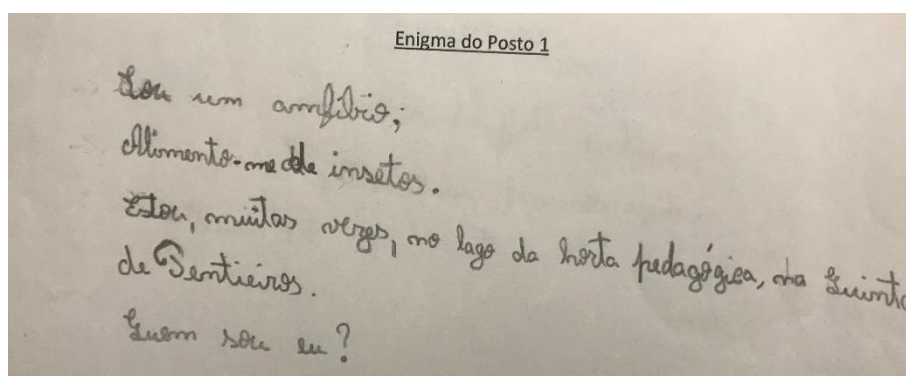 Enigma do Posto 1
Sou um anfíbio;
Alimento-me de insetos.
Estou, muitas vezes, no lago da horta pedagógica, na Quinta
de Pentieiros.
Quem sou eu?